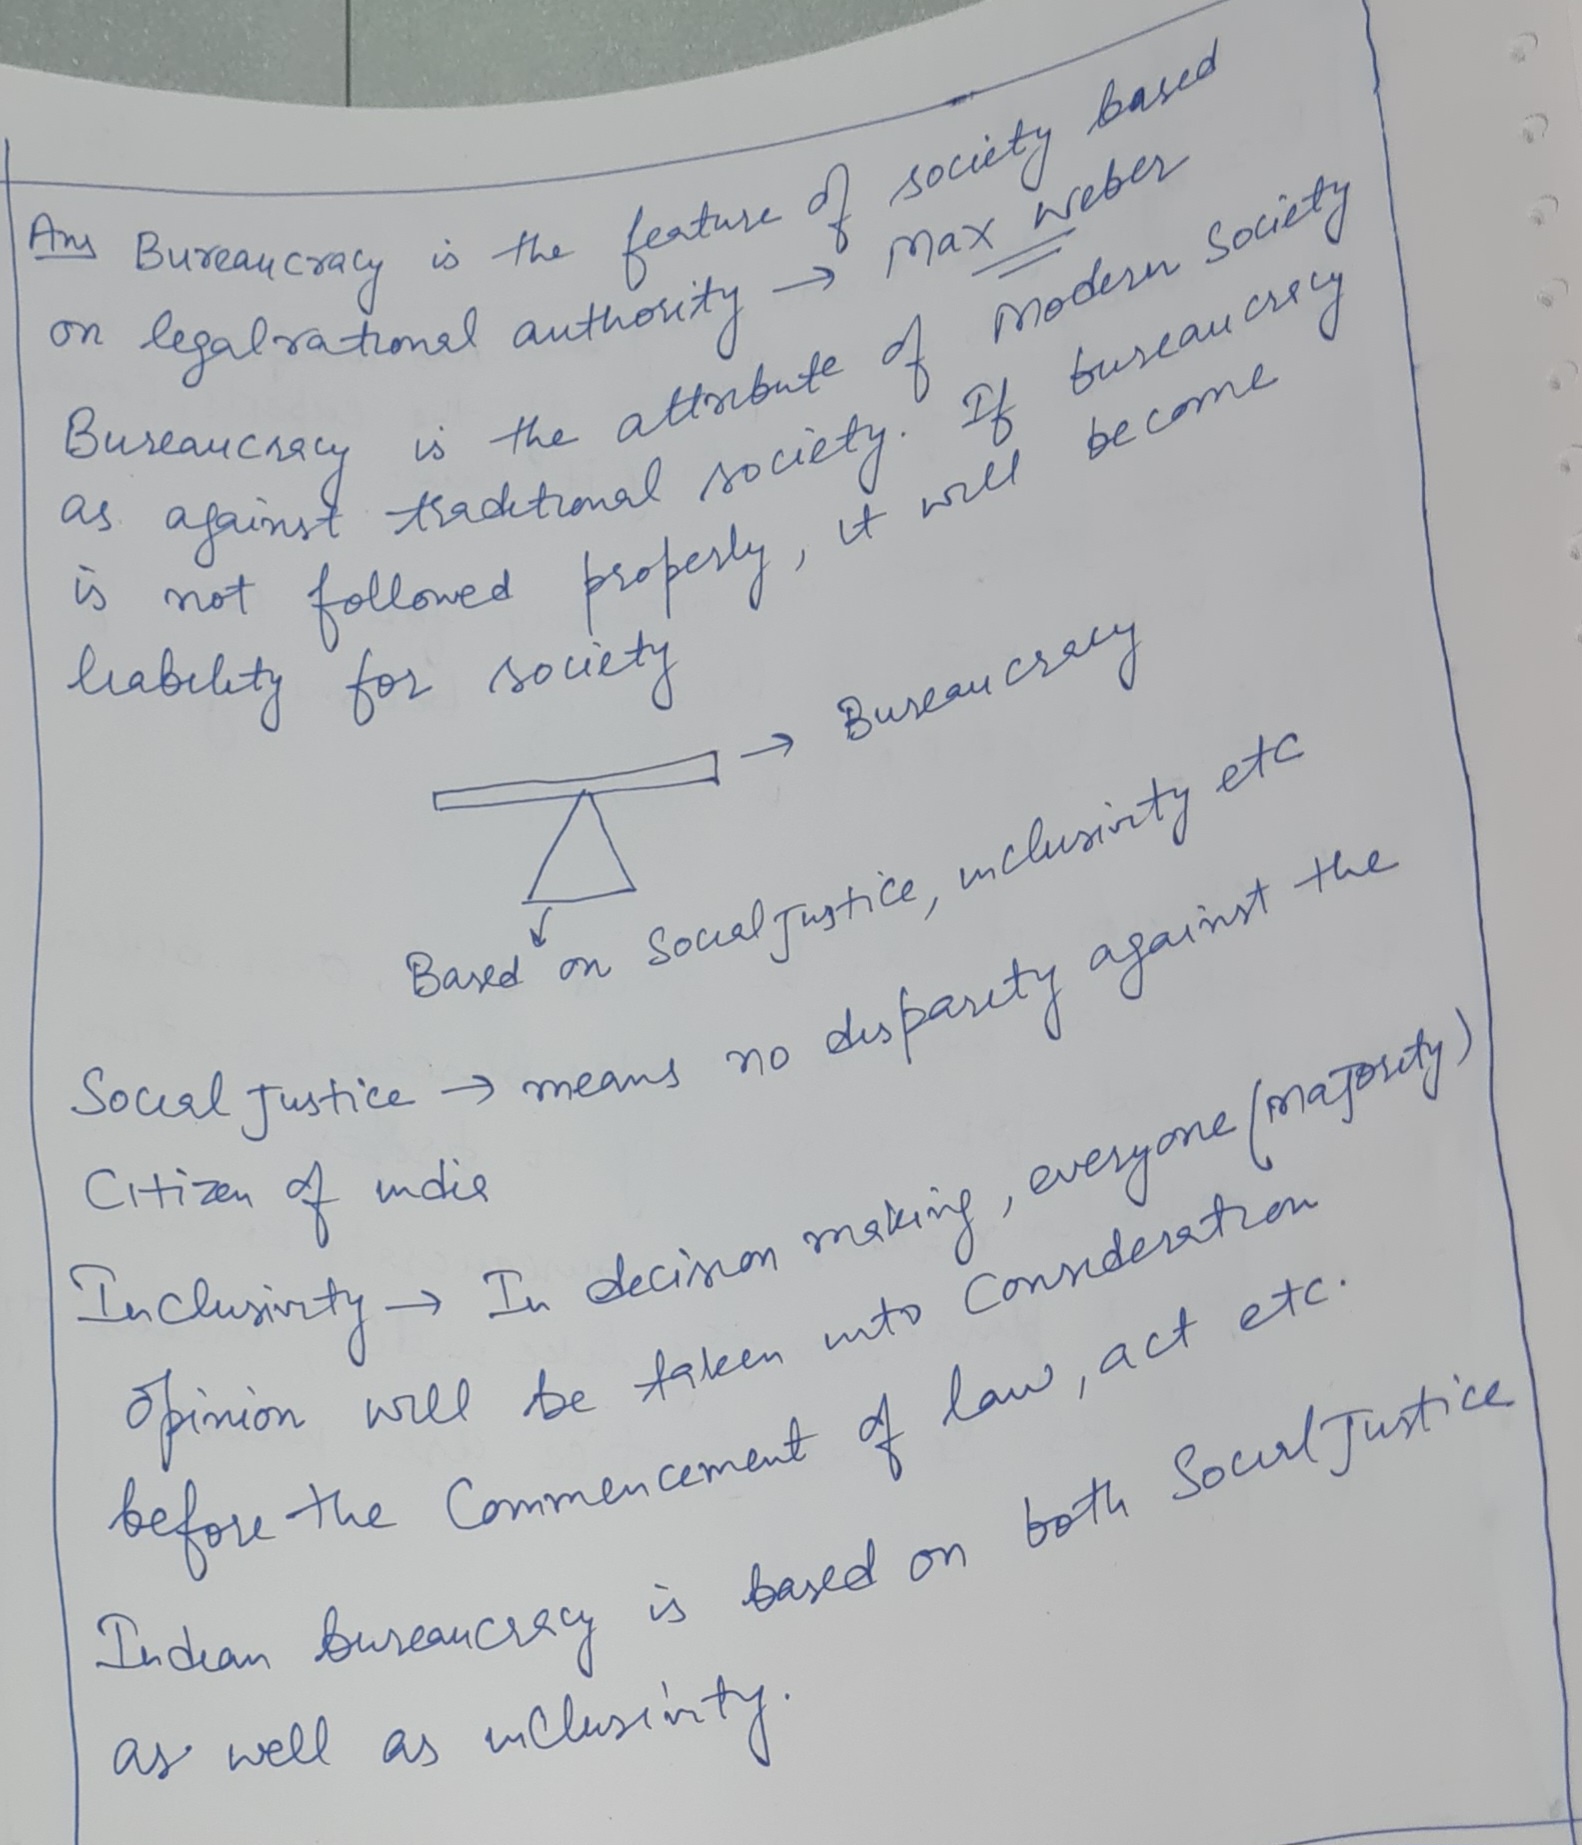 Ans Bureaucracy is the feature of society based
on legal rational authority → Max Weber
Bureaucracy is the attribute of Modern Society
as against traditional society. If bureaucracy
is not followed properly, it will become
liability for society
→ Bureaucracy
Based on Social Justice, inclusivity etc
Social Justice → means no disparity against the
Citizen of india
Inclusivity → In decision making, everyone (majority)
opinion will be taken into Consideration
before the Commencement of law, act etc.
Indian bureaucracy is based on both Social Justice
as well as inclusivity.